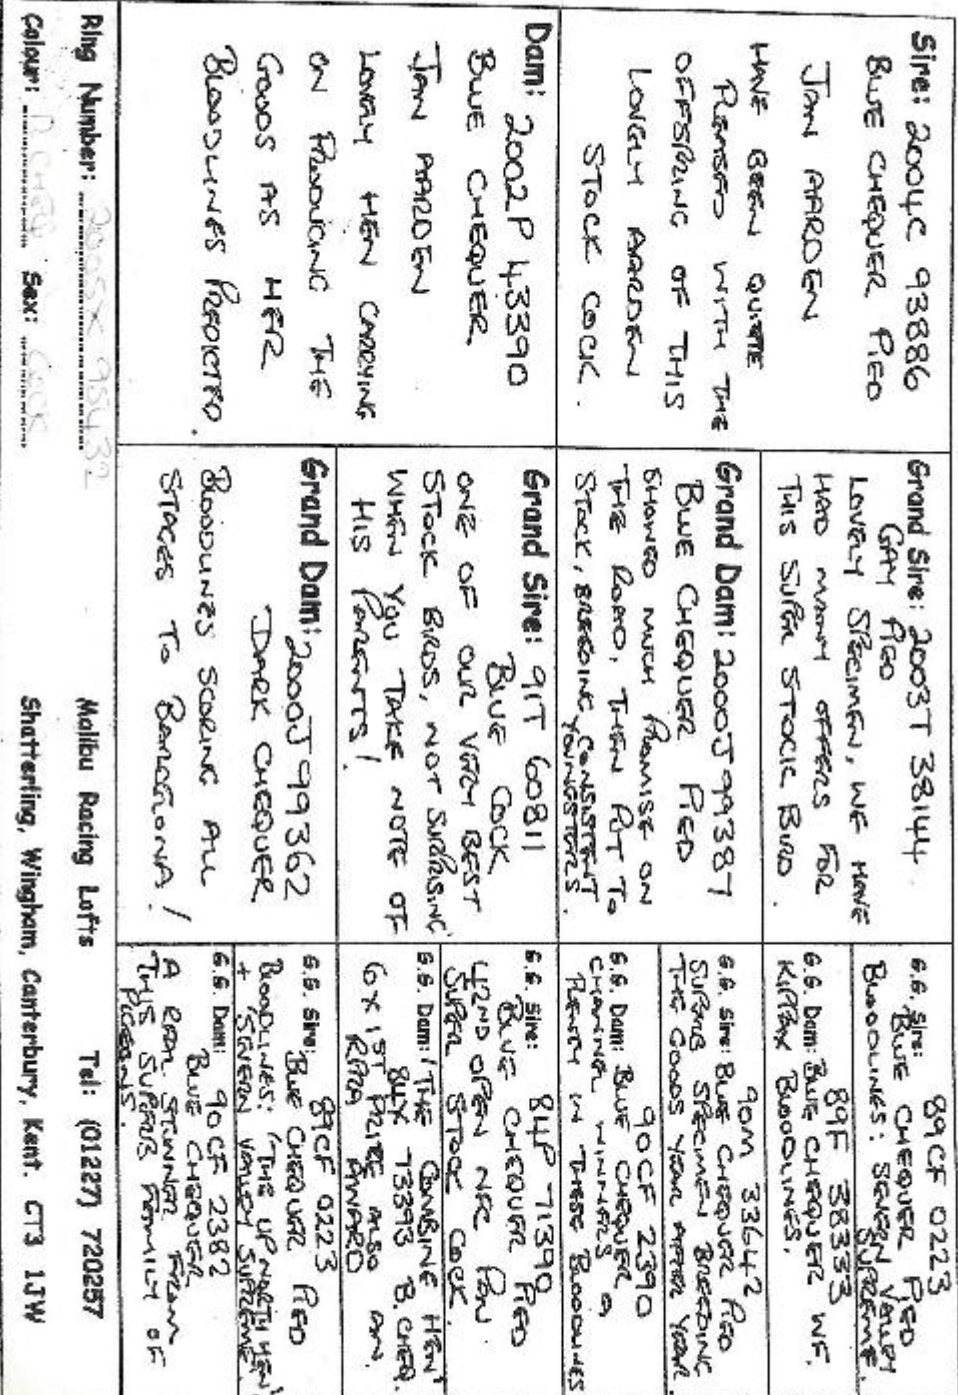 Sire: 2004C 93886
BLUE CHEQUER PIED
JAN AARDEN
HAVE BEEN QUITE
PLEASED WITH THE
OFFSPRING OF THIS
LONGLY AARDEN
STOCK COCK.
Dam: 2002P 43390
BLUE CHEQUER
JAN AARDEN
LOVELY HEN CARRYING
ON PRODUCING THE
GOODS AS HER
BLOODLINES PREDICTED.
Grand Sire: 2003T 38144
GAY PIED
LOVELY SPECIMEN, WE HAVE
HAD MANY OFFERS FOR
THIS SUPER STOCK BIRD.
Grand Dam: 2000J 99387
BLUE CHEQUER PIED
SHOWED MUCH PROMISE ON
THE ROAD, THEN PUT TO
STOCK, BREEDING CONSISTENT
YOUNGSTERS.
Grand Sire: 91T 60811
BLUE COCK
ONE OF OUR VERY BEST
STOCK BIRDS, NOT SURPRISING
WHEN YOU TAKE NOTE OF
HIS PARENTS!
Grand Dam: 2000J 99362
DARK CHEQUER
BLOODLINES SCORING ALL
STAGES TO BARCELONA!
G.G. Sire: 89CF 0223
BLUE CHEQUER PIED
BLOODLINES: SEVERN VALLEY
SUPREME.
G.G. Dam: 89F 38333
BLUE CHEQUER WF.
KIPPAX BLOODLINES.
G.G. Sire: 90M 33642
BLUE CHEQUER PIED
SUPERB SPECIMEN BREEDING
THE GOODS YEAR AFTER YEAR.
G.G. Dam: 90CF 2390
BLUE CHEQUER
CHANNEL WINNERS A
PLENTY IN THESE BLOODLINES
G.G. Sire: 84P 71390
BLUE CHEQUER PIED
42ND OPEN NFC PAU
SUPER STOCK COCK.
G.G. Dam: 'THE COMBINE HEN'
84X 73393 B. CHEQ.
6 X 1ST PRIZE ALSO AN
AWARD
G.G. Sire: 89CF 0223
BLUE CHEQUER PIED
BLOODLINES: 'THE UP NORTH HEN'
+ 'SEVERN VALLEY SUPREME'
G.G. Dam: 90CF 2382
BLUE CHEQUER
A REAL STUNNER FROM
THIS SUPERB FAMILY OF
PIGEONS.
Ring Number: 2005X 95432
Colour: Sex: COCK
Malibu Racing Lofts Tel: (01227) 720257
Shatterling, Wingham, Canterbury, Kent. CT3 1JW